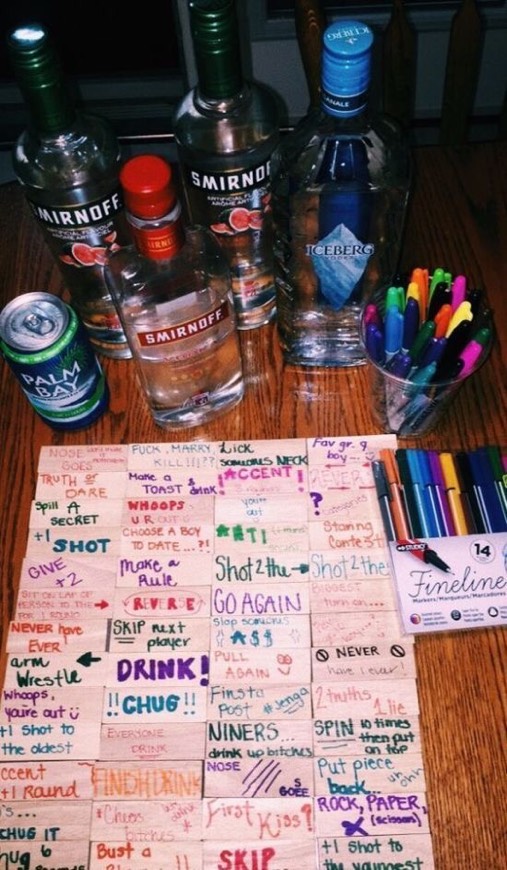 ICEBERG
SMIRNOFF
ARTIFICIAL FLAVOUR
SMIRNOFF
ARTIFICIAL FLAVOUR
ICEBERG
SMIRNOFF
PALM
BAY
NOSE
GOES
FUCK, MARRY,
KILL!!!??
Lick
someones NECK
Fav gr. 9
boy...
TRUTH or
DARE
Make a
TOAST & drink
*ACCENT!
Spill A
SECRET
WHOOPS
U R OUT
your
out
?
+1 SHOT
CHOOSE A BOY
TO DATE...?!
Staring
Contest
GIVE
+2
Make a
Rule
Shot 2 the
Shot 2 the
SIT ON LAP OF
PERSON TO THE
FOR 1 ROUND
REVERSE
GO AGAIN
BIGGEST
turn on...
NEVER have
EVER
SKIP next
player
Slap someones
A$$
arm
Wrestle
DRINK!
PULL
AGAIN
NEVER
have I ever!
Whoops,
you're out
!!CHUG!!
Finsta
Post #Jenga
2 truths
1 lie
+1 Shot to
the oldest
EVERYONE
DRINK
NINERS...
drink up bitches
SPIN 10 times
then put
on top
ccent
+1 Round
FINISH DRINK
NOSE
GOES
Put piece
back...
uh oh!
's...
CHUG IT
*Cheers
bitches
First
Kiss?
ROCK, PAPER,
(scissors)
hug 6
Bust a
SKIP
+1 Shot to
the youngest
14
Fineline
Markers/Marqueurs/Marcadores